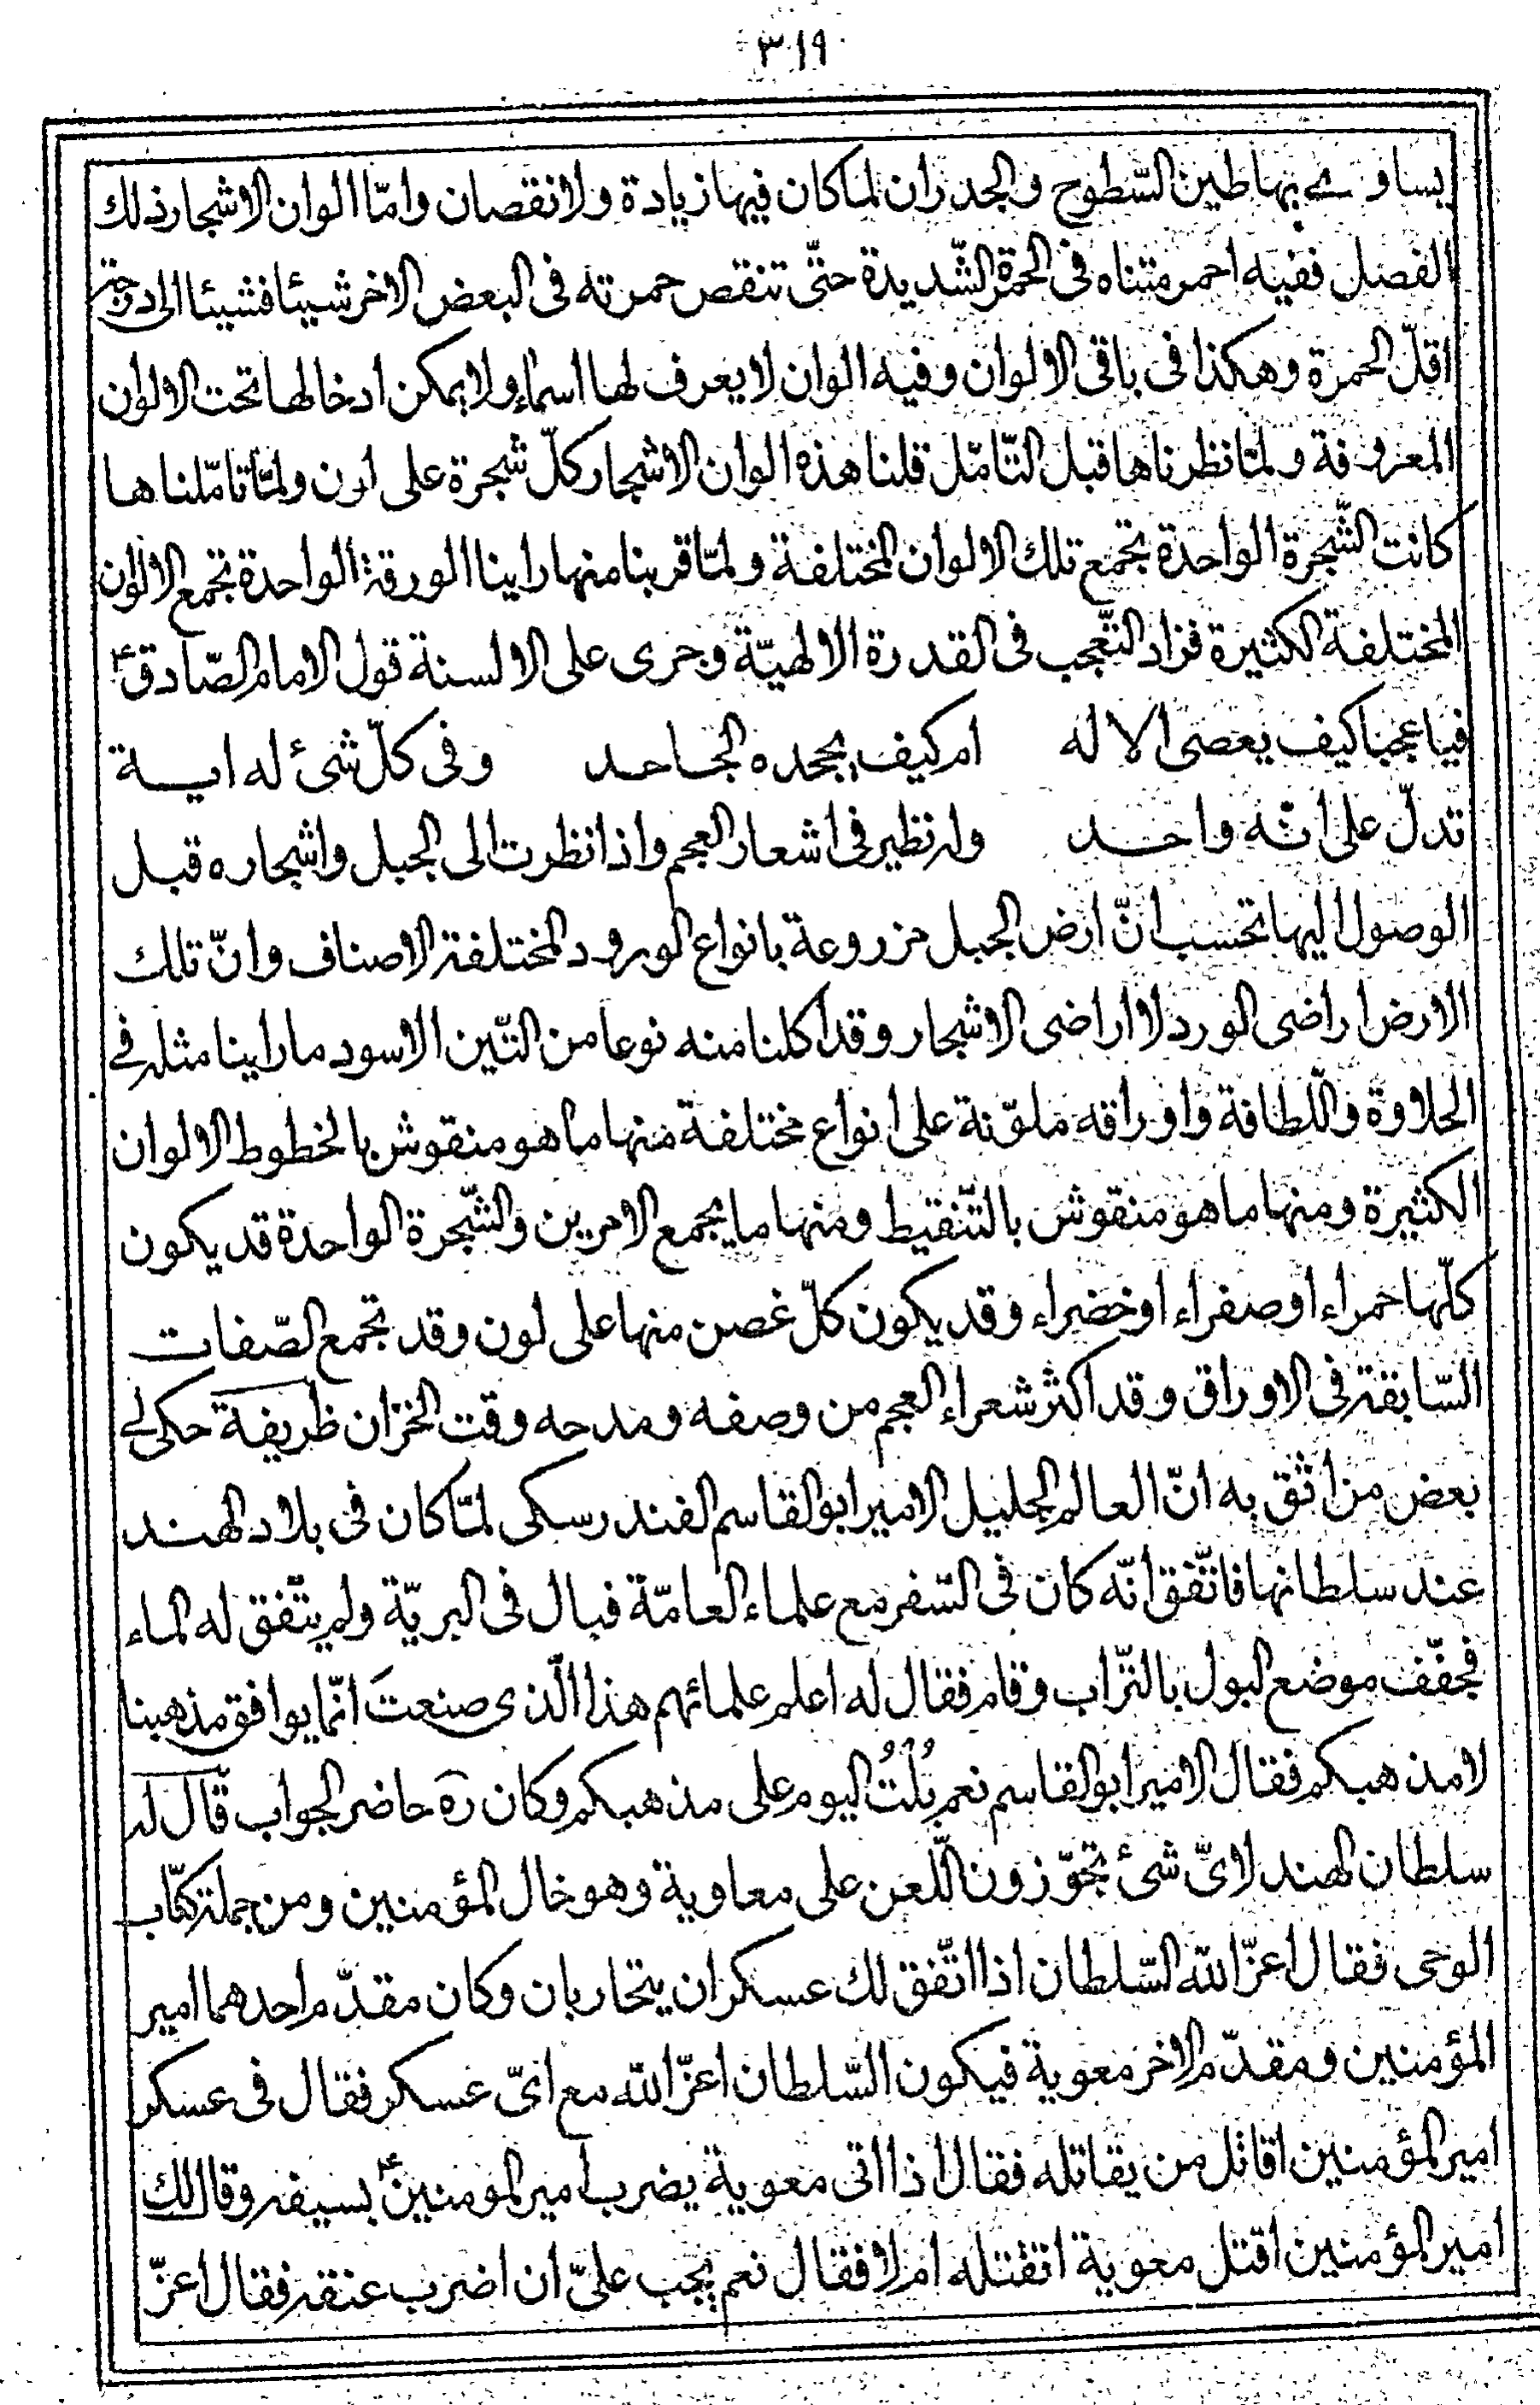 ٣١٩
يساوے بها طين السّطوح والجدران لما كان فيها زيادة ولا نقصان وامّا الوان الاشجار ذلك
الفصل ففيه احمر متناه فى الحمرة الشّديدة حتّى تنقص حمرته فى البعض الاخر شيئا فشيئا الى درجة
اقلّ الحمرة وهكذا فى باقى الالوان وفيه الوان لا يعرف لها اسماء ولا يمكن ادخالها تحت الالوان
المعروفة ولمّا نظرناها قبل التّامّل قلنا هذه الوان الاشجار كلّ شجرة على لون ولمّا تامّلناها
كانت الشّجرة الواحدة تجمع تلك الالوان المختلفة ولمّا قربنا منها راينا الورقة الواحدة تجمع الالوان
المختلفة الكثيرة فزاد التّعجب فى القدرة الالهيّة وجرى على الالسنة قول الامام الصّادق ع
فيا عجبا كيف يعصى الاله ام كيف يجحده الجاحد وفى كلّ شئ له اية
تدلّ على انّه واحد وله نظير فى اشعار العجم واذا نظرت الى الجبل واشجاره قبل
الوصول اليها تحسب انّ ارض الجبل مزروعة بانواع الورود المختلفة الاصناف وانّ تلك
الارض اراضى الورد لا اراضى الاشجار وقد اكلنا منه نوعا من التّين الاسود ما راينا مثله فے
الحلاوة واللّطافة واوراقه ملوّنة على انواع مختلفة منها ما هو منقوش بالخطوط الالوان
الكثيرة ومنها ما هو منقوش بالتّنقيط ومنها ما يجمع الامرين والشّجرة الواحدة قد يكون
كلّها حمراء او صفراء او خضراء وقد يكون كلّ غصن منها على لون وقد تجمع الصّفات
السّابقة فى الاوراق وقد اكثر شعراء العجم من وصفه ومدحه وقت الخزان ظريفة حكى لے
بعض من اثق به انّ العالم الجليل الامير ابو القاسم الفندرسكى لمّا كان فى بلاد الهند
عند سلطانها فاتّفق انّه كان فى السّفر مع علماء العامّة فبال فى البريّة ولم يتّفق له الماء
فجفّف موضع البول بالتّراب وقام فقال له اعلم علمائهم هذا الّذى صنعتَ انّما يوافق مذهبنا
لا مذهبكم فقال الامير ابو القاسم نعم بُلْتُ اليوم على مذهبكم وكان ره حاضر الجواب قال له
سلطان الهند لاىّ شئ تجوّزون اللّعن على معاوية وهو خال المؤمنين ومن جملة كتّاب
الوحى فقال اعزّ الله السّلطان اذا اتّفق لك عسكران يتحاربان وكان مقدّم احدهما امير
المؤمنين ومقدّم الاخر معوية فيكون السّلطان اعزّ الله مع اىّ عسكر فقال فى عسكر
امير المؤمنين اقاتل من يقاتله فقال اذا اتى معوية يضرب امير المومنين ع بسيفه وقال لك
امير المؤمنين اقتل معوية اتقتله ام لا فقال نعم يجب علىّ ان اضرب عنقه فقال اعزّ